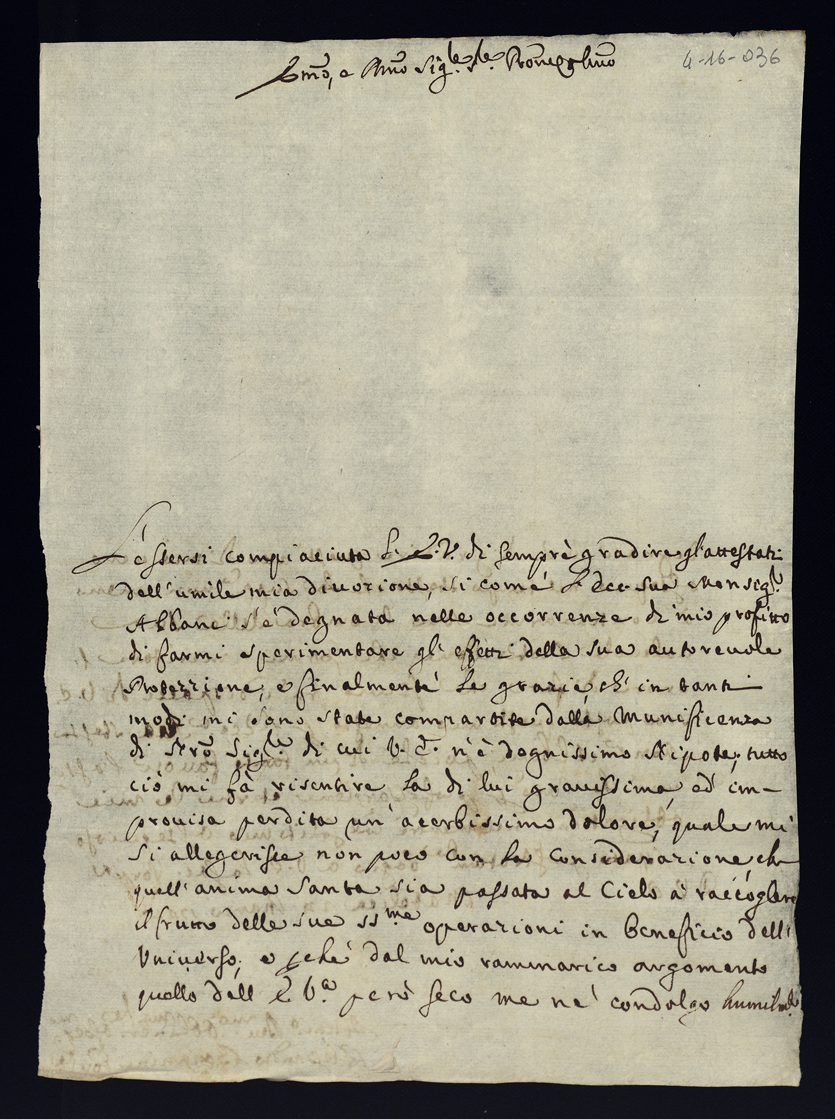 Emo, e Rmo Sig.le Sle Pron
4-16-036
L'essersi compiaciuta l'E.V. di sempre gradire gl'attestati
dell'umile mia divozione, si come l'Ecc. sua Monsig.r
Albani s'è degnata nelle occorrenze di mio profitto
di farmi esperimentare gl'effetti della sua autoreuole
Protezzione; e finalmente le grazie, ch'in tanti
modi mi sono state compartite dalla Munificenza
di Sig.re di cui V.E. n'è degnissimo Nipote; tutto
ciò mi fà risentire la di lui grauissima, ed im-
prouisa perdita un'acerbissimo dolore, quale mi
si allegerisce non poco con la considerazione che
quell'anima santa sia passata al Cielo à raccogliere
il frutto delle sue ss.me operazioni in beneficio dell'
Universo; e pchè dal mio rammarico argomento
quello dell'E.V.a però seco me ne condolgo humilm.te